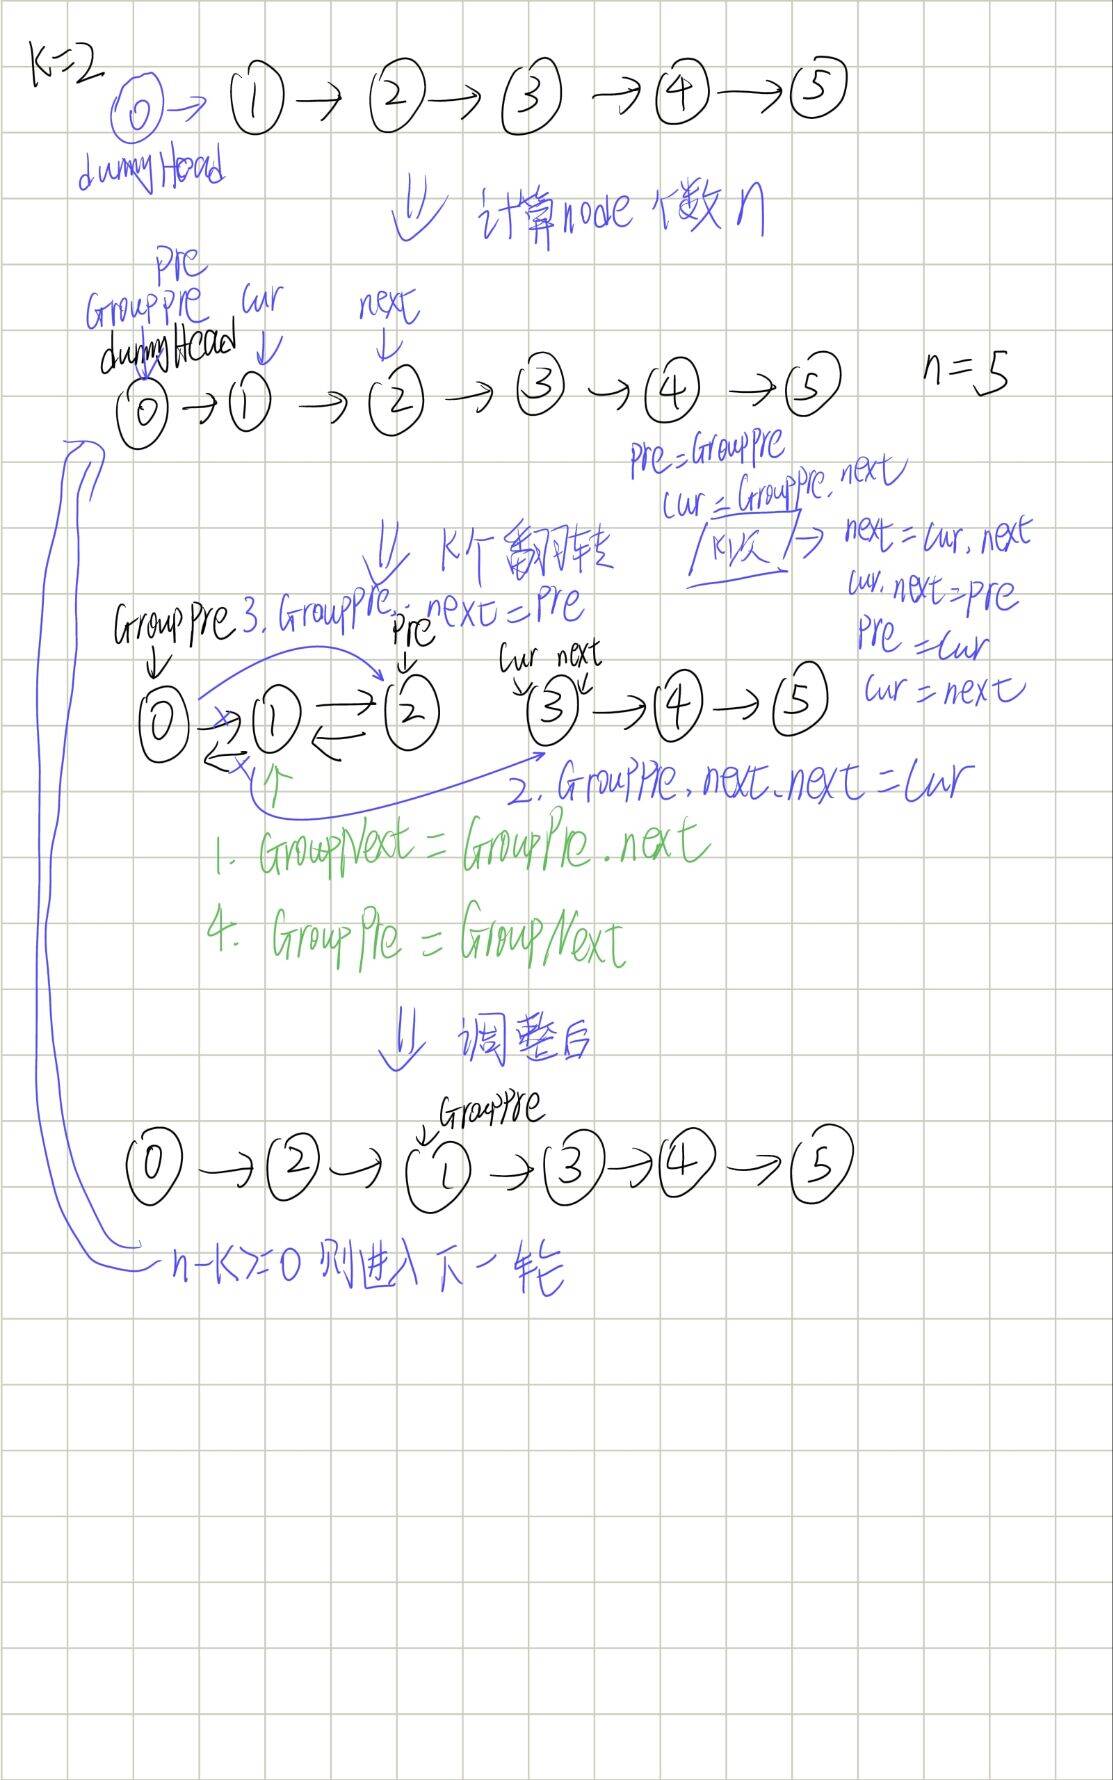 K=2
0 → 1 → 2 → 3 → 4 → 5
dummyHead
计算node个数n
pre
GroupPre cur next
dummyHead
0 → 1 → 2 → 3 → 4 → 5 n=5
pre=GroupPre
cur=GroupPre.next
K次 → next=cur.next
K个翻转
cur.next=pre
GroupPre 3. GroupPre.next=pre
pre
pre=cur
cur next
cur=next
0 → 1 → 2 3 → 4 → 5
2. GroupPre.next.next=cur
1. GroupNext=GroupPre.next
4. GroupPre=GroupNext
调整后
GroupPre
0 → 2 → 1 → 3 → 4 → 5
n-K>=0 则进入下一轮